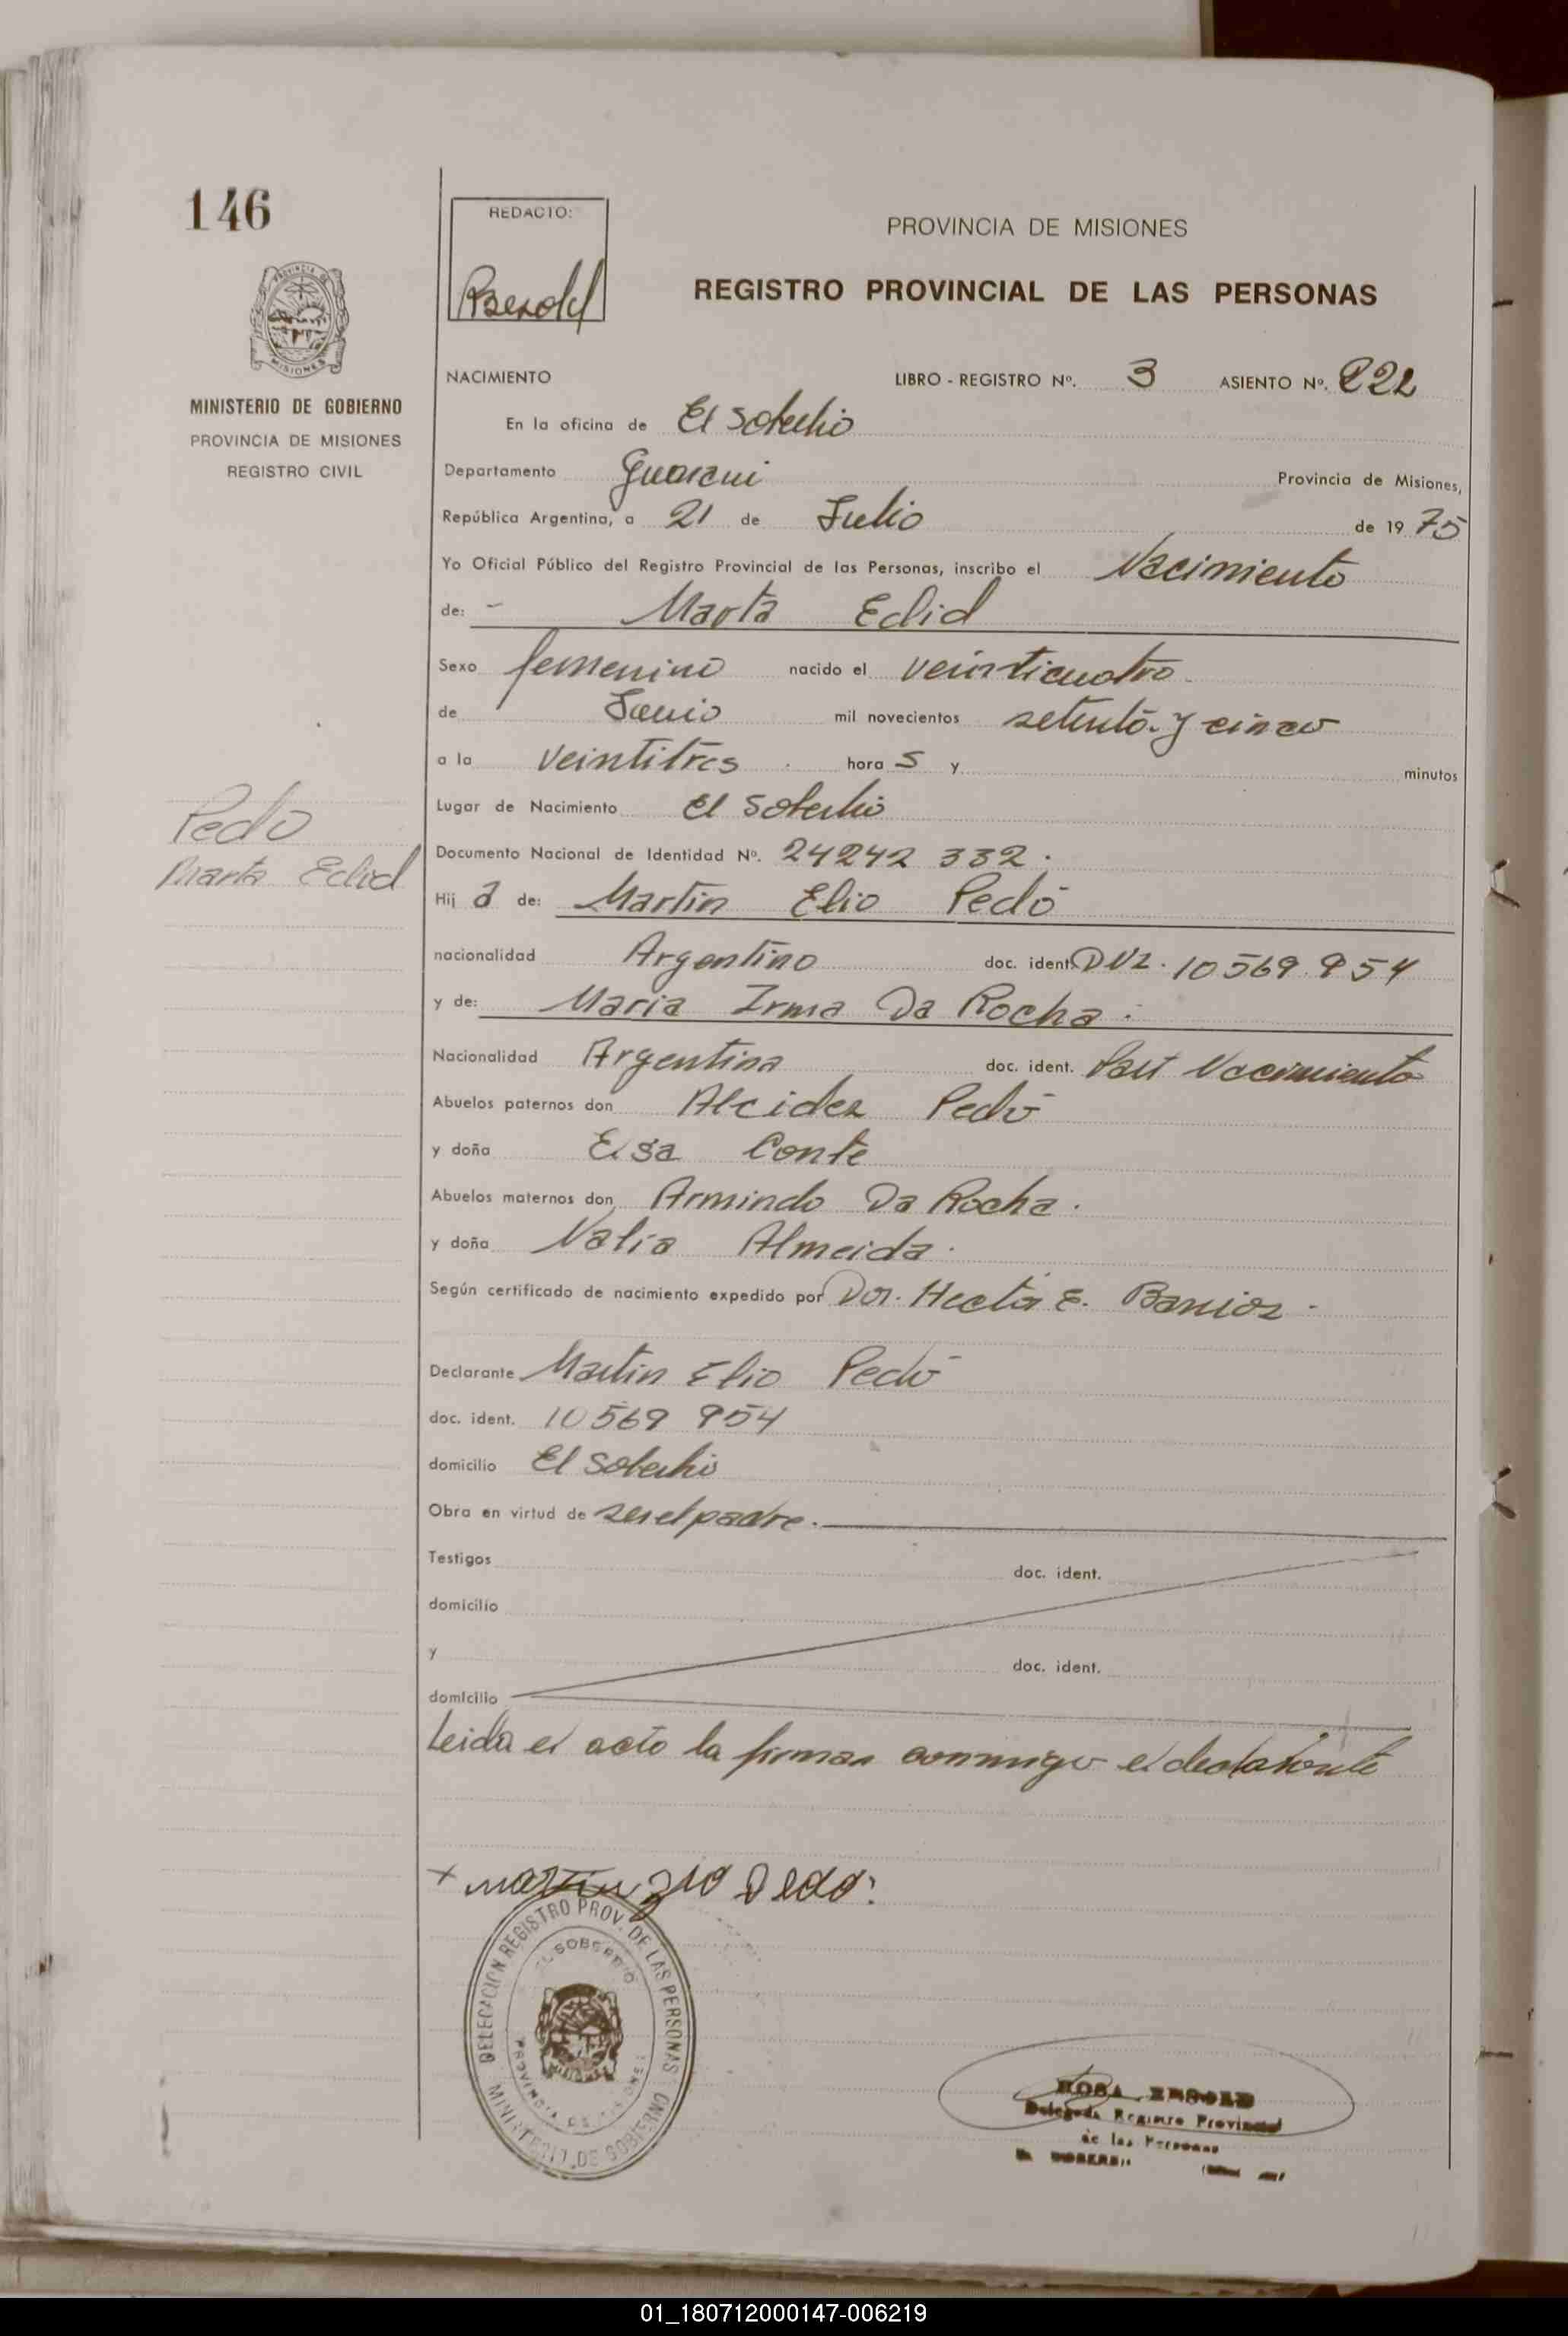 146
REDACTO:
PROVINCIA DE MISIONES
REGISTRO PROVINCIAL DE LAS PERSONAS
PROVINCIA DE
MISIONES
MINISTERIO DE GOBIERNO
PROVINCIA DE MISIONES
REGISTRO CIVIL
NACIMIENTO LIBRO - REGISTRO Nº. 3 ASIENTO Nº. 222
En la oficina de El Soberbio
Departamento Guarani Provincia de Misiones,
República Argentina, a 21 de Julio de 1975
Yo Oficial Público del Registro Provincial de las Personas, inscribo el Nacimiento
de: - Marta Eclid
Sexo femenino nacido el veinticuatro
de Junio mil novecientos setenta y cinco
a la veintitres horas y minutos
Lugar de Nacimiento El Soberbio
Pedo
Marta Eclid
Documento Nacional de Identidad Nº. 24242 332.
Hija de: Martin Elio Pedó
nacionalidad Argentino doc. ident. DNI. 10569.954
y de: Maria Irma Da Rocha.
Nacionalidad Argentina doc. ident. Part Nacimiento
Abuelos paternos don Alcides Pedó
y doña Elsa Conte
Abuelos maternos don Armindo Da Rocha.
y doña Nalia Almeida.
Según certificado de nacimiento expedido por Dor. Hector E. Barrios.
Declarante Martin Elio Pedó
doc. ident. 10569 954
domicilio El Soberbio
Obra en virtud de ser el padre.
Testigos doc. ident.
domicilio
y doc. ident.
domicilio
Leida el acto la firman conmigo el declarante
+ martin Elio Pedo.
DELEGACION REGISTRO PROV. DE LAS PERSONAS
EL SOBERBIO
PROVINCIA DE MISIONES
MINISTERIO DE GOBIERNO
ROSA
Delegada Registro Provincial
de las Personas
01_180712000147-006219